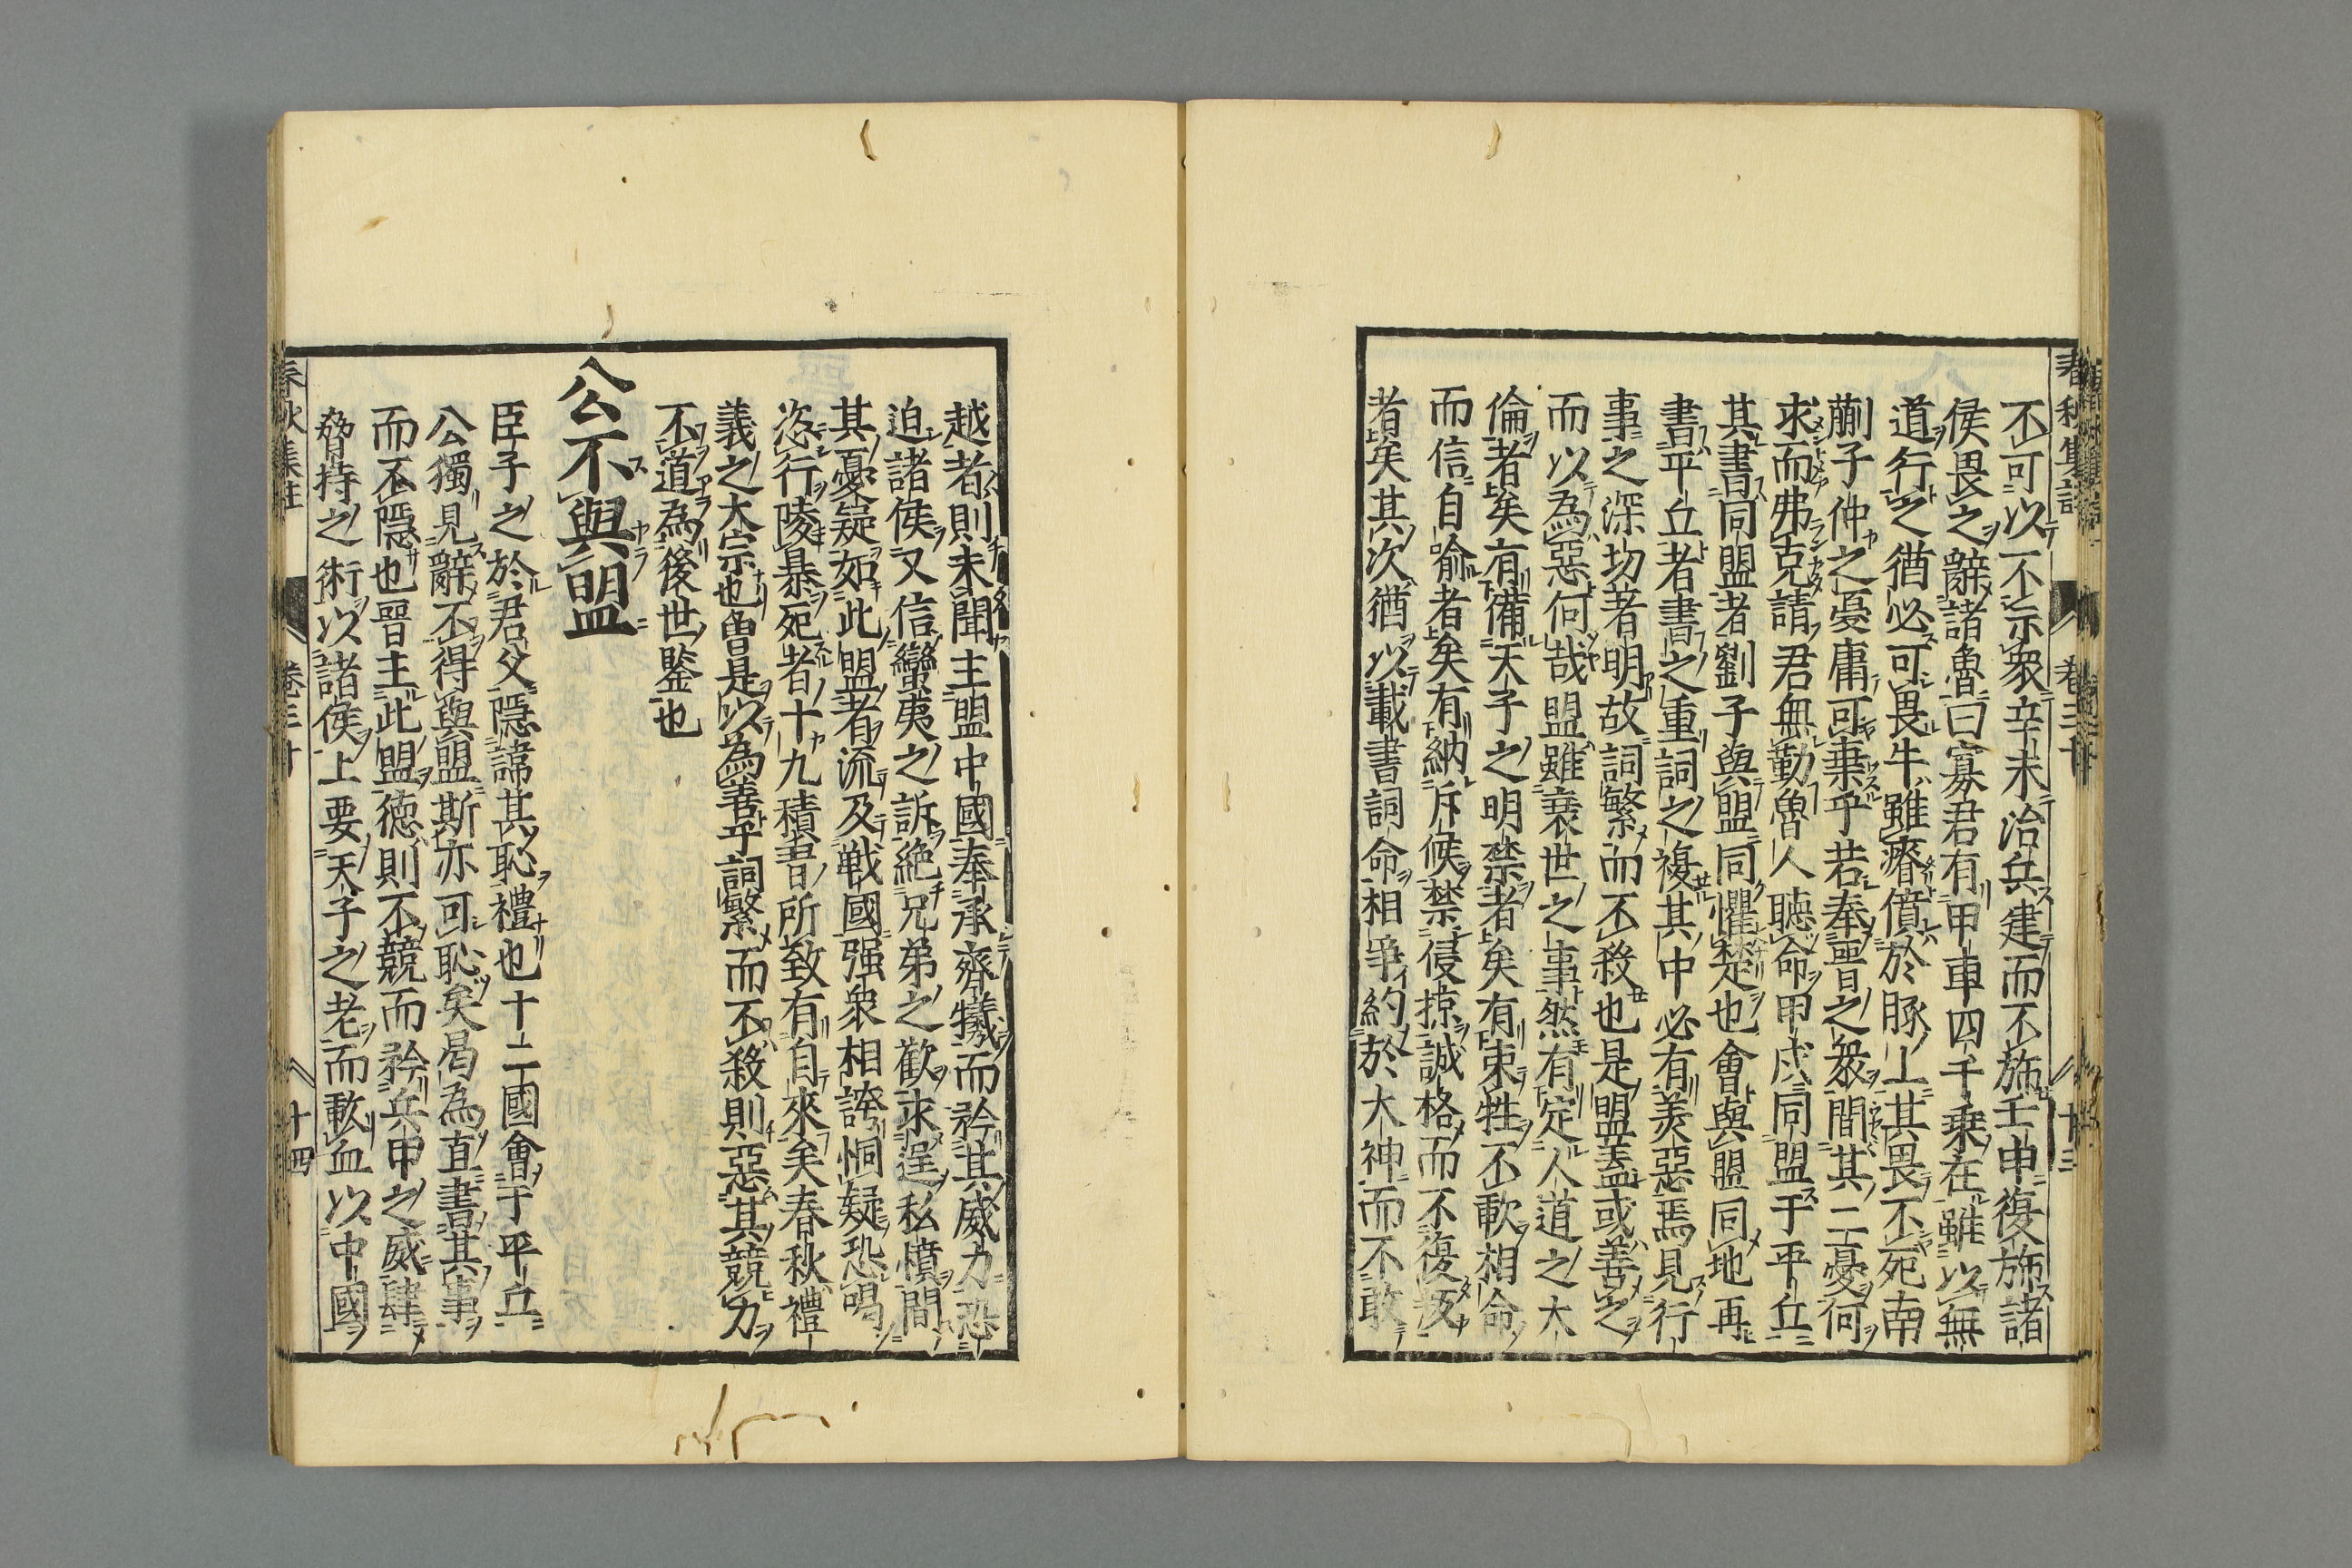 不可以不示衆辛未治兵建而不旆壬申復旆諸
侯畏之辭諸魯曰寡君有甲車四千乘在雖以無
道行之猶必可畏牛雖瘠僨於豚上其畏不死南
蒯子仲之憂庸可棄乎若奉晉之衆間其二憂何
求而弗克請君無勤魯人聽命甲戌同盟于平丘
其書同盟者劉子與盟同懼楚也會與盟同地再
書平丘者書之重詞之複其中必有美惡焉見行
事之深切著明故詞繁而不殺也是盟蓋或善之
而以為惡何哉盟雖衰世之事然有定人道之大
倫者矣有備天子之明禁者矣有束牲不歃相命
而信自喻者矣有納斥候禁侵掠誠格而不復叛
者矣其次猶以載書詞命相爭約於大神而不敢
越者則未聞主盟中國奉承齊犧而矜其威力恐
迫諸侯又信蠻夷之訴絶兄弟之歡求逞私憤間
其憂疑如此盟者流及戰國强衆相誇恫疑恐喝
恣行陵暴死者十九積書所致有自來矣春秋禮
義之大宗也曽是以為善乎詞繁而不殺則惡其競力
不道為後世鑒也
公不與盟
臣子之於君父隱諱其恥禮也十二國會于平丘
公獨見辭不得與盟斯亦可恥矣曷為直書其事
而不隱也晉主此盟德則不競而矜兵甲之威肆
脅持之術以諸侯上要天子之老而歃血以中國
春秋集註 卷三十 十四